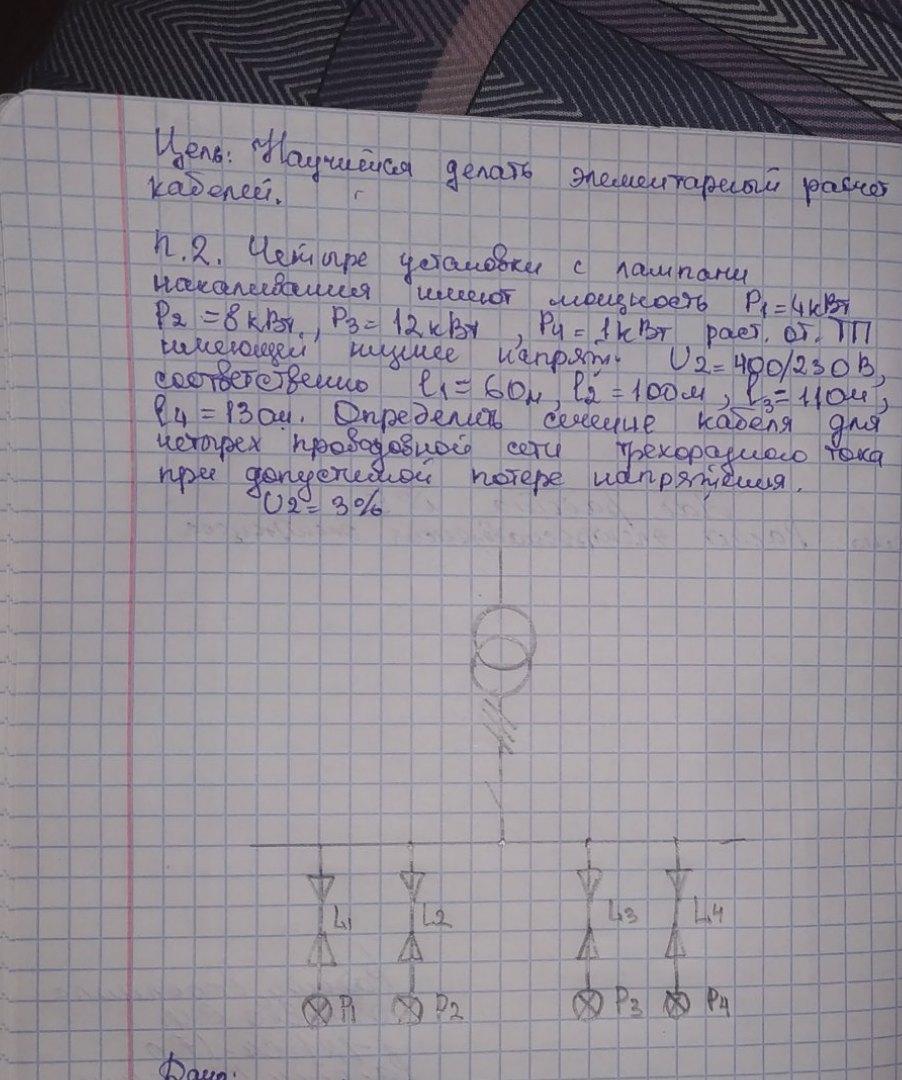 Цель: Научийся делать элементарный расчет
кабелей.
п.2. Четыре установки с лампами
накаливания имеют мощность P1=4кВт
P2=8кВт, P3=12кВт, P4=1кВт раст. от. ТП
имеющей низшее напряж. U2=400/230В,
соответственно l1=60м, l2=100м, l3=110м,
l4=130м. Определить сечение кабеля для
четырех проводовной сети трехфазного тока
при допустимой потере напряжения.
U2=3%
L1 L2 L3 L4
P1 P2 P3 P4
Дано: